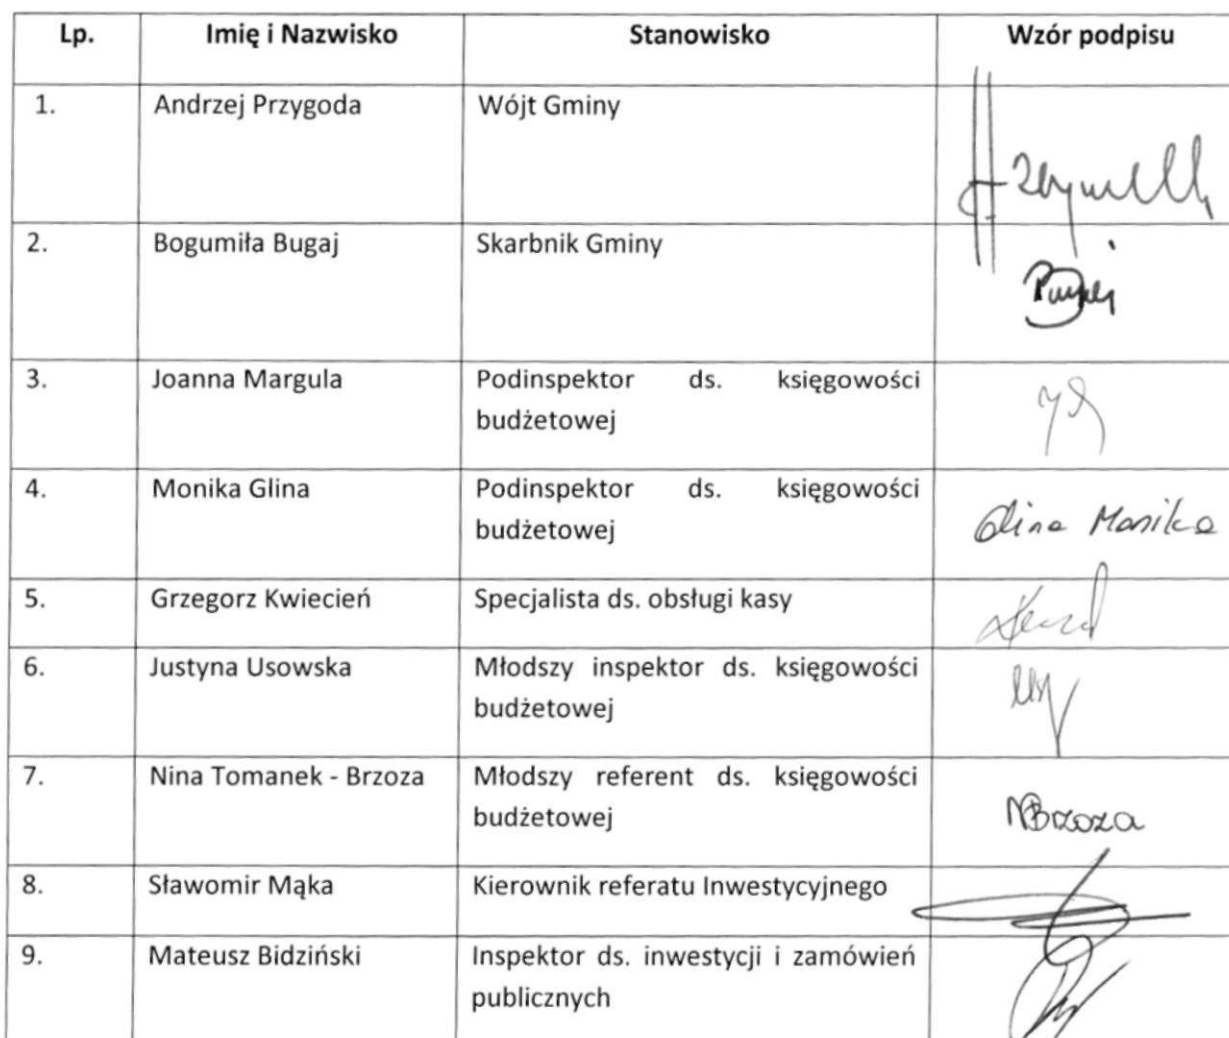 Lp. Imię i Nazwisko Stanowisko Wzór podpisu
1. Andrzej Przygoda Wójt Gminy
2. Bogumiła Bugaj Skarbnik Gminy
3. Joanna Margula Podinspektor ds. księgowości
budżetowej
4. Monika Glina Podinspektor ds. księgowości
budżetowej Glina Monika
5. Grzegorz Kwiecień Specjalista ds. obsługi kasy
6. Justyna Usowska Młodszy inspektor ds. księgowości
budżetowej
7. Nina Tomanek - Brzoza Młodszy referent ds. księgowości
budżetowej NBrzoza
8. Sławomir Mąka Kierownik referatu Inwestycyjnego
9. Mateusz Bidziński Inspektor ds. inwestycji i zamówień
publicznych